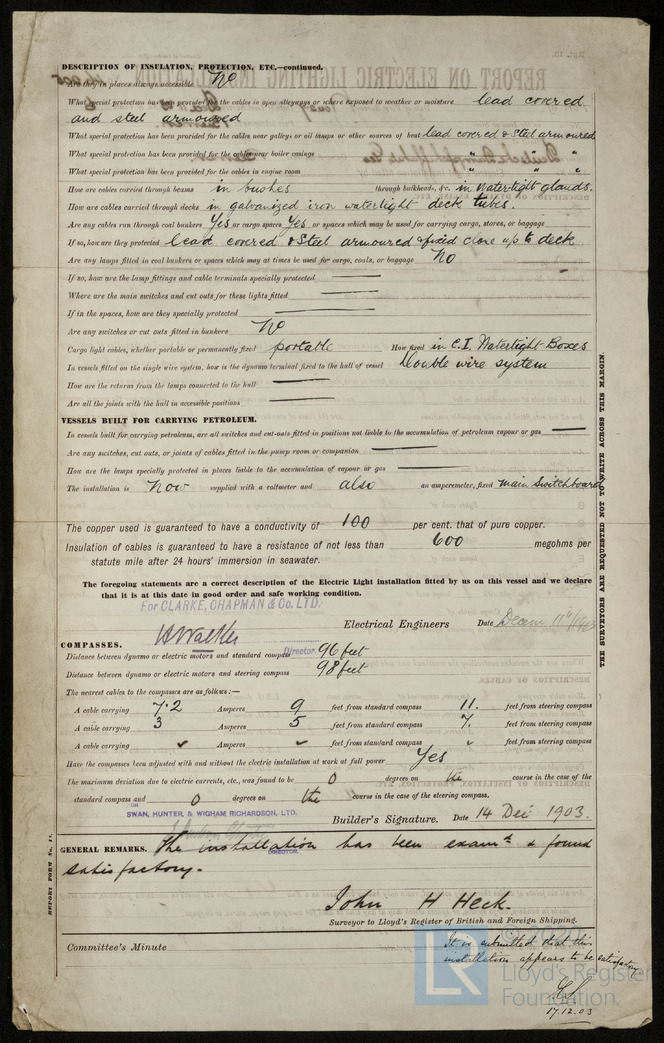 DESCRIPTION OF INSULATION, PROTECTION, ETC.—continued.
Are they in places always accessible No
What special protection has been provided for the cables in open alleyways or where exposed to weather or moisture lead covered
and steel armoured
What special protection has been provided for the cables near galleys or oil lamps or other sources of heat lead covered & steel armoured
What special protection has been provided for the cables near boiler casings " " "
What special protection has been provided for the cables in engine room " " "
How are cables carried through beams in bushes through bulkheads, &c. in watertight glands.
How are cables carried through decks in galvanized iron watertight deck tubes.
Are any cables run through coal bunkers Yes or cargo spaces Yes or spaces which may be used for carrying cargo, stores, or baggage
If so, how are they protected lead covered & steel armoured & fixed close up to deck
Are any lamps fitted in coal bunkers or spaces which may at times be used for cargo, coals, or baggage No
If so, how are the lamp fittings and cable terminals specially protected
Where are the main switches and cut outs for these lights fitted
If in the spaces, how are they specially protected
Are any switches or cut outs fitted in bunkers No
Cargo light cables, whether portable or permanently fixed portable How fixed in C.I. Watertight Boxes
In vessels fitted on the single wire system, how is the dynamo terminal fixed to the hull of vessel Double wire system
How are the returns from the lamps connected to the hull
Are all the joints with the hull in accessible positions
VESSELS BUILT FOR CARRYING PETROLEUM.
In vessels built for carrying petroleum, are all switches and cut-outs fitted in positions not liable to the accumulation of petroleum vapour or gas
Are any switches, cut outs, or joints of cables fitted in the pump room or companion
How are the lamps specially protected in places liable to the accumulation of vapour or gas
The installation is now supplied with a voltmeter and also an amperemeter, fixed main switchboard
The copper used is guaranteed to have a conductivity of 100 per cent. that of pure copper.
Insulation of cables is guaranteed to have a resistance of not less than 600 megohms per
statute mile after 24 hours' immersion in seawater.
The foregoing statements are a correct description of the Electric Light installation fitted by us on this vessel and we declare
that it is at this date in good order and safe working condition.
For CLARKE, CHAPMAN & Co. LTD.
Walker Director. Electrical Engineers Date Decem 11th/1903
COMPASSES.
Distance between dynamo or electric motors and standard compass 96 feet
Distance between dynamo or electric motors and steering compass 98 feet
The nearest cables to the compasses are as follows:—
A cable carrying 7.2 Amperes 9 feet from standard compass 11. feet from steering compass
A cable carrying 3 Amperes 5 feet from standard compass 7. feet from steering compass
A cable carrying Amperes feet from standard compass feet from steering compass
Have the compasses been adjusted with and without the electric installation at work at full power Yes
The maximum deviation due to electric currents, etc., was found to be 0 degrees on the course in the case of the
standard compass and 0 degrees on the course in the case of the steering compass.
SWAN, HUNTER, & WIGHAM RICHARDSON, LTD.
Builder's Signature. Date 14 Dec 1903.
DIRECTOR.
GENERAL REMARKS. The installation has been examd & found
satisfactory.
John H Heck.
Surveyor to Lloyd's Register of British and Foreign Shipping.
Committee's Minute
It is submitted that this
installation appears to be satisfactory
17.12.03
THE SURVEYORS ARE REQUESTED NOT TO WRITE ACROSS THIS MARGIN.
LR
Lloyd's Register
Foundation